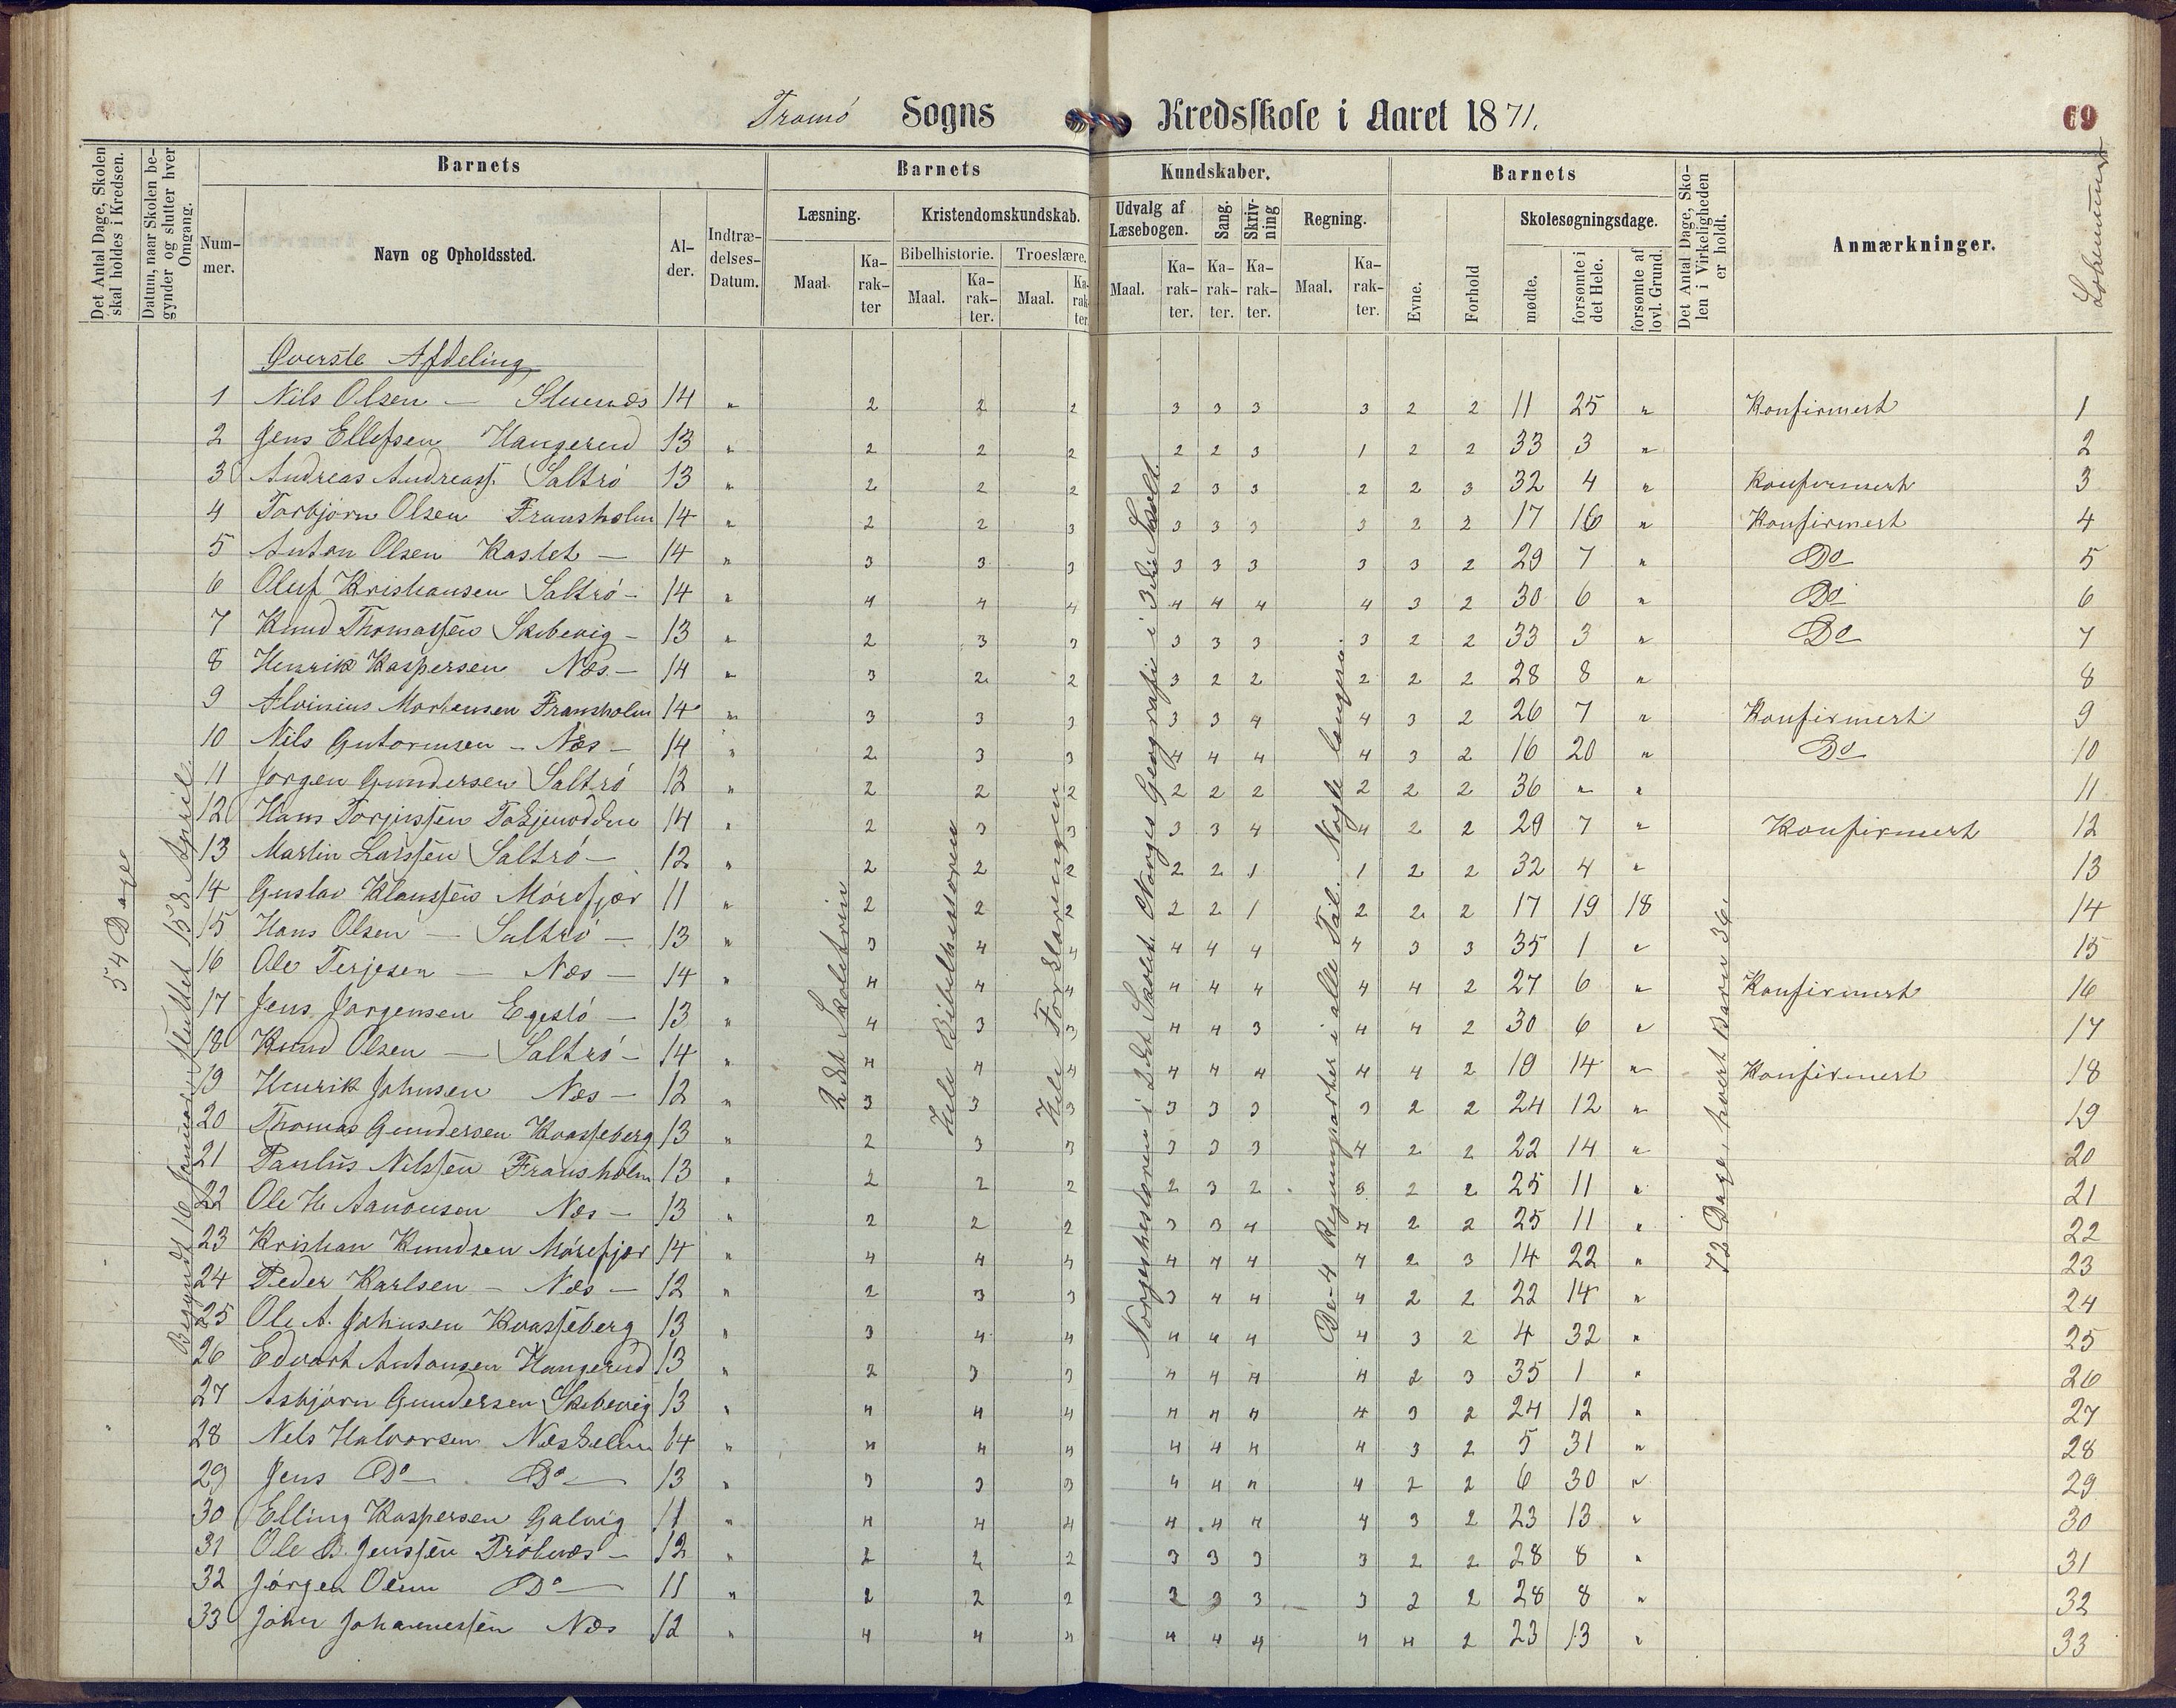 Tromö Sogns Kredsskole i Aaret 1871. 69
Det Antal Dage, Skolen skal holdes i Kredsen.
Datum, naar Skolen begynder og slutter hver Omgang.
Barnets
Nummer. Navn og Opholdssted. Alder. Indtrædelses-Datum.
Barnets Kundskaber.
Læsning. Kristendomskundskab. Udvalg af Læsebogen. Sang. Skrivning Regning.
Bibelhistorie. Troeslære.
Maal Karakter Maal. Karakter. Maal. Karakter. Maal. Karakter. Karakter. Karakter. Maal. Karakter.
Barnets
Evne. Forhold Skolesøgningsdage.
mødte. forsømte i det Hele. forsømte af lovl. Grund.
Det Antal Dage, Skolen i Virkeligheden er holdt.
Anmærkninger.
Løbenummer
54 Dage
Begyndt 16 Januar, sluttet 15de April
2det Skoletrin
Hele Bibelhistorien
Hele Forklaringen
Norgeshistorien i 2det Skolet. Norges Geografi i 3die Skolet.
De 4 Regningsarter i alle Tal. Nogle længere.
72 Dage, hvert Barn 36.
Øverste Afdeling
1 Nils Olsen — Stuenæs 14 " 2 2 2 3 3 3 3 2 2 11 25 " Konfirmert 1
2 Jens Ellefsen Haugerud 13 " 2 2 2 2 2 3 1 2 2 33 3 " 2
3 Andreas Andreass. Saltrö 13 " 2 2 2 2 3 3 2 2 3 32 4 " Konfirmert 3
4 Torbjörn Olsen Fransholm 14 " 2 2 3 3 3 3 3 2 2 17 16 " Konfirmert 4
5 Anton Olsen Kastet — 14 " 3 3 3 3 3 3 3 3 2 29 7 " Do 5
6 Oluf Kristiansen Saltrö — 14 " 4 4 4 4 4 4 4 3 2 30 6 " Do 6
7 Knud Thomassen Skibevig — 13 " 2 3 3 3 3 3 3 2 2 33 3 " Do 7
8 Henrik Kaspersen Næs — 14 " 3 2 2 3 2 2 2 2 2 28 8 " 8
9 Alvinius Mortensen Fransholm 14 " 3 3 3 3 3 4 4 3 2 26 7 " Konfirmert 9
10 Nils Gutormsen — Næs — 14 " 2 3 3 4 4 4 4 3 2 16 20 " Do 10
11 Jørgen Gundersen Saltrö 12 " 2 2 2 2 2 2 2 2 2 36 " " 11
12 Hans Torjussen 14 " 2 3 3 3 3 4 4 2 2 29 7 " Konfirmert 12
13 Martin Larssen Saltrö — 12 " 2 2 2 2 2 1 1 2 2 32 4 " 13
14 Gustav Klaussen Mörefjær 11 " 2 2 2 2 2 1 2 2 2 17 19 18 14
15 Hans Olsen — Saltrö — 13 " 3 4 4 4 4 4 4 3 3 35 1 " 15
16 Ole Terjesen — Næs — 14 " 4 4 4 4 4 4 4 4 2 27 6 " Konfirmert 16
17 Jens Jørgensen — 13 " 4 3 3 4 4 3 4 4 2 30 6 " 17
18 Knud Olsen — Saltrö — 14 " 4 4 4 4 4 4 4 4 2 19 14 " Konfirmert 18
19 Henrik Johnsen Næs — 12 " 3 3 3 3 3 3 3 2 2 24 12 " 19
20 Thomas Gundersen Kvasseberg 13 " 2 3 3 3 3 3 4 2 2 22 14 " 20
21 Paulus Nilssen Fransholm 13 " 2 2 2 2 3 2 3 2 2 25 11 " 21
22 Ole H. Aanonsen Næs — 13 " 2 2 2 3 3 4 4 2 2 25 11 " 22
23 Kristian Knudsen Mörefjær 14 " 4 4 4 4 4 4 4 2 3 14 22 " 23
24 Peder Karlsen — Næs — 12 " 2 3 3 3 4 4 4 2 2 22 14 " 24
25 Ole A. Johnsen Kvasseberg 13 " 3 4 4 4 4 4 4 3 2 4 32 " 25
26 Edvart Antonsen Haugerud 13 " 2 3 3 4 4 4 4 2 3 35 1 " 26
27 Asbjörn Gundersen Skibevig 13 " 4 4 4 4 4 4 4 3 2 24 12 " 27
28 Nils Halvorsen Næskilen 14 " 4 4 4 4 4 4 4 3 2 5 31 " 28
29 Jens Do — Do — 13 " 3 3 3 4 4 4 4 2 2 6 30 " 29
30 Elling Kaspersen Galvig 11 " 4 4 4 4 4 4 4 3 2 23 13 " 30
31 Ole B. Jenssen — 12 " 2 2 2 3 3 3 3 2 2 28 8 " 31
32 Jörgen Do — 11 " 2 2 2 2 3 3 3 2 2 28 8 " 32
33 John Johannessen Næs 12 " 4 4 4 4 4 4 4 4 2 23 13 " 33